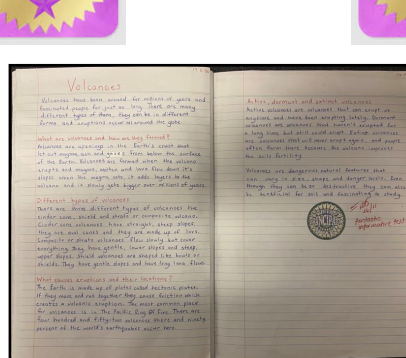 Volcanoes
Volcanoes have been around for millions of years and
fascinated people for just as long. There are many
different types of them, they can be in different
forms and eruptions occur all around the globe.
What are volcanoes and how are they formed?
Volcanoes are openings in the Earth's crust that
let out magma, ash and gases from below the surface
of the Earth. Volcanoes are formed when the volcano
erupts and magma, and lava flow down it's
slopes when this magma sets, it adds layers to the
volcano and it slowly gets bigger over millions of years.
Different types of volcanoes
There are three different types of volcanoes the
cinder cone, shield and strato or composite volcano.
Cinder cone volcanoes have straight, steep slopes,
they are oval cones and they are made up of lava.
Composite or strato volcanoes flow slowly but cover
everything they have gentle, lower slopes and steep
upper slopes. Shield volcanoes are shaped like bowls or
shields. They have gentle slopes and have long lava flows.
What causes eruptions and their locations?
The Earth is made up of plates called tectonic plates.
If they move and rub together they cause friction which
creates a volcanic eruption. The most common place
for volcanoes is in The Pacific Ring Of Fire. There are
four hundred and fifty-two volcanoes there and ninety
percent of the world's earthquakes occur here.
Active, dormant and extinct volcanoes
Active volcanoes are volcanoes that can erupt at
anytime and have been erupting lately. Dormant
volcanoes are volcanoes that haven't erupted for
a long time but still could erupt. Extinct volcanoes
are volcanoes that will never erupt again and people
often farm there because the volcano improves
the soils fertility.
Volcanoes are dangerous natural features that
can vary in size, shape and danger levels. Even
though they can be so destructive they can also
be beneficial for soil and fascinating to study.
fantastic
informative text